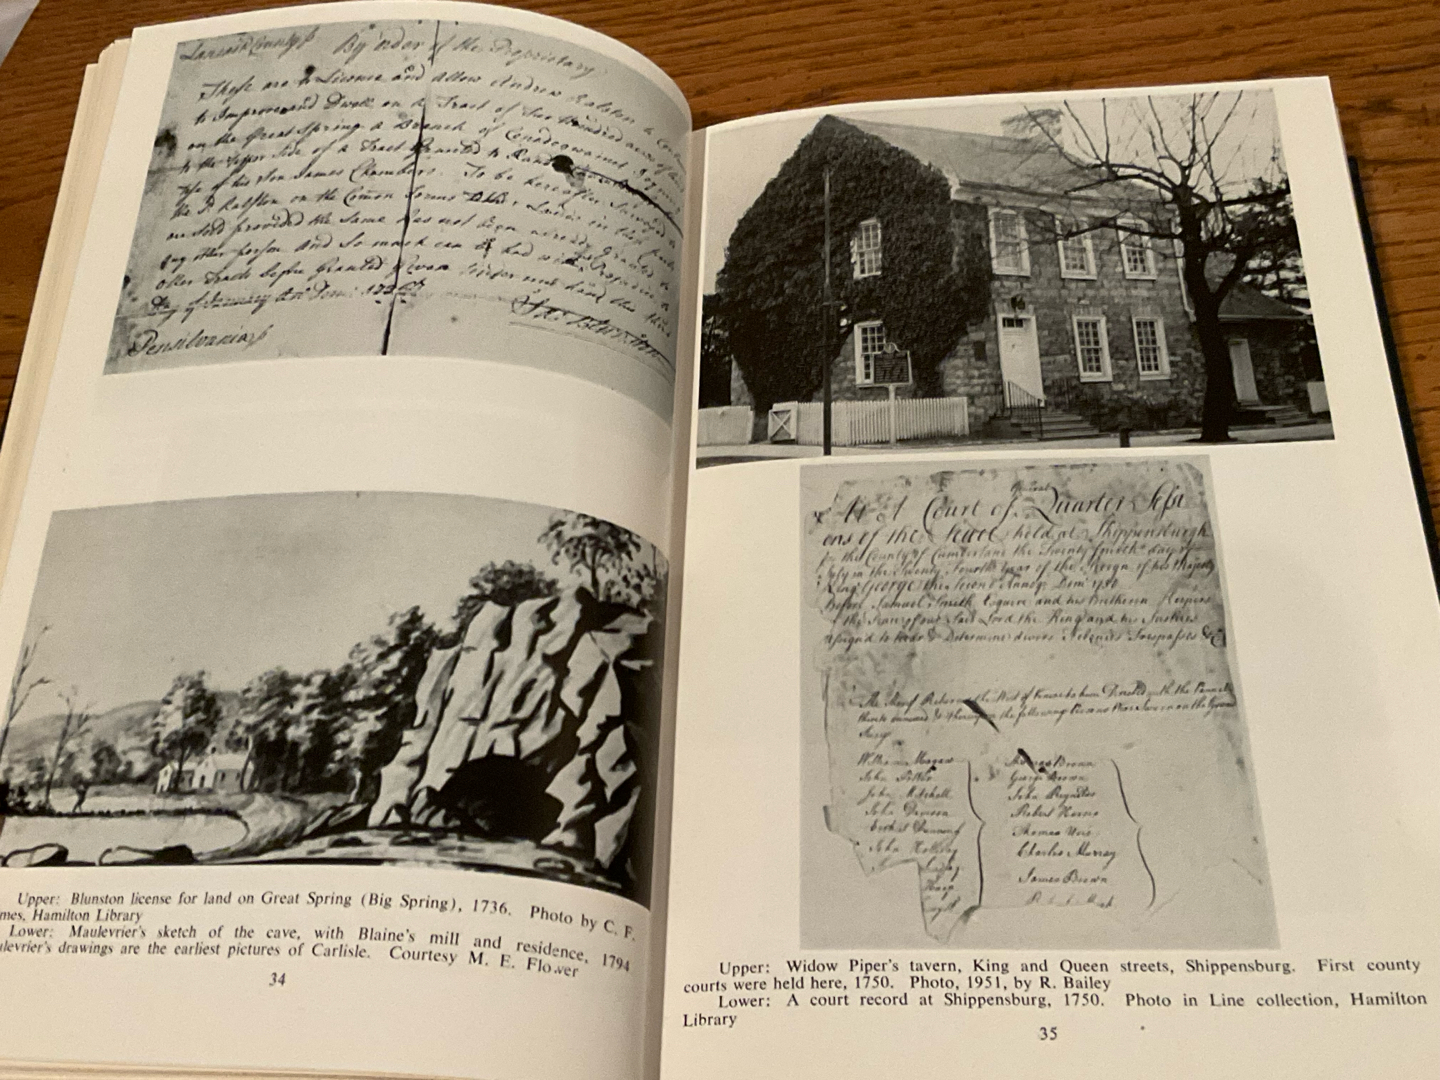 Lancaster County ss By order of the Proprietary
These are to Licence and allow Andrew Ralston to
to Improve and Dwell on a Tract of Two Hundred acres of
on the Great Spring a Branch of
to the upper Side of a Tract Granted to
of his Son James Chambers. To be hereafter Surveyed to
the Sd Ralston on the Comon Terms Other Lands in
are Sold provided the Same has not been already Granted to
any other person and So much can be had without
other Tracts before Granted Given under my hand this third
Day of January
Pensilvania ss
Upper: Blunston license for land on Great Spring (Big Spring), 1736. Photo by C. F.
mes, Hamilton Library
Lower: Maulevrier's sketch of the cave, with Blaine's mill and residence, 1794
levrier's drawings are the earliest pictures of Carlisle. Courtesy M. E. Flower
34
At A Court of General Quarter Sessi
ons of the Peace held at Shippensburgh
for the County of Cumberland the Twenty fourth day of
July in the Twenty Fourth Year of the Reign of his Majesty
King George the Second Annoq Dom 1750
Before Samuel Smith Esquire and his Brethren Keepers
of the Peace of our Said Lord the King and his Justices
assigned to hear & Determine divers Felonies Trespasses &c
The Sherif Returned the Writ of to him Directed with the Pannel
thereto annexed & the following Persons were Sworn on the Grand
Jury
William Magaw Thomas Brown
John Potter George Brown
John Mitchell John Reynolds
John Davison Robert Harris
Thomas Urie
John Charles Murray
James Brown
Upper: Widow Piper's tavern, King and Queen streets, Shippensburg. First county
courts were held here, 1750. Photo, 1951, by R. Bailey
Lower: A court record at Shippensburg, 1750. Photo in Line collection, Hamilton
Library
35